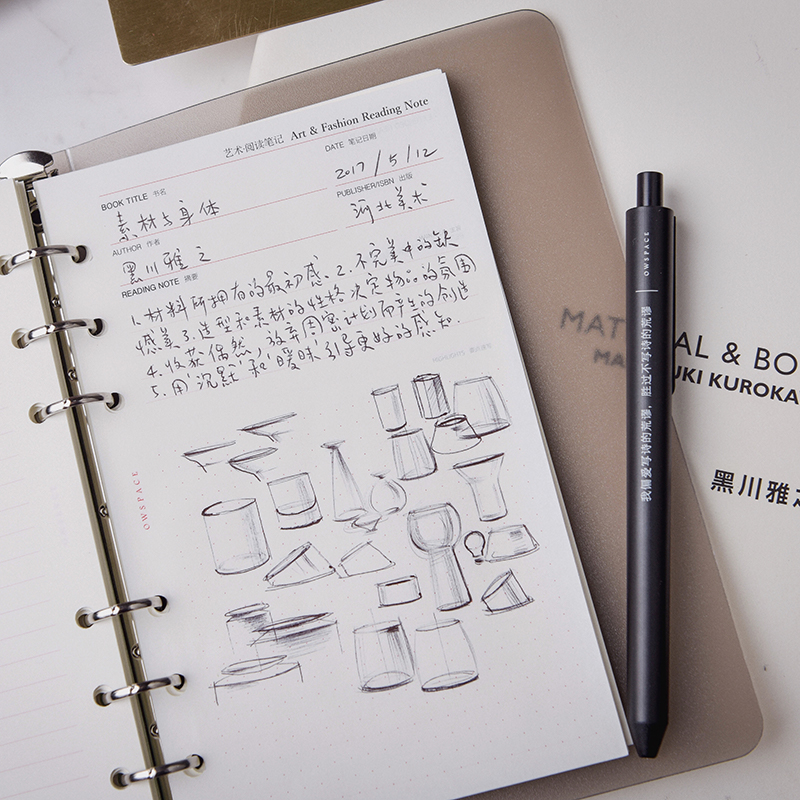 艺术·阅读笔记 Art & Fashion Reading Note
DATE 笔记日期
2017/5/12
BOOK TITLE 书名
素材与身体
PUBLISHER/ISBN 出版
河北美术
AUTHOR 作者
黑川雅之
READING NOTE 摘要
1.材料所拥有的最初感.2.不完美中的缺
憾美3.造型和素材的性格决定物品的氛围
4.收获"偶然",放弃周密计划而产生的创造
5.用"沉默"和"暧昧"引导更好的感知.
OWSPACE
OWSPACE
我偏爱写诗的荒谬，胜过不写诗的荒谬
MAT AL & BO
MA UKI KUROKA
黑川雅之